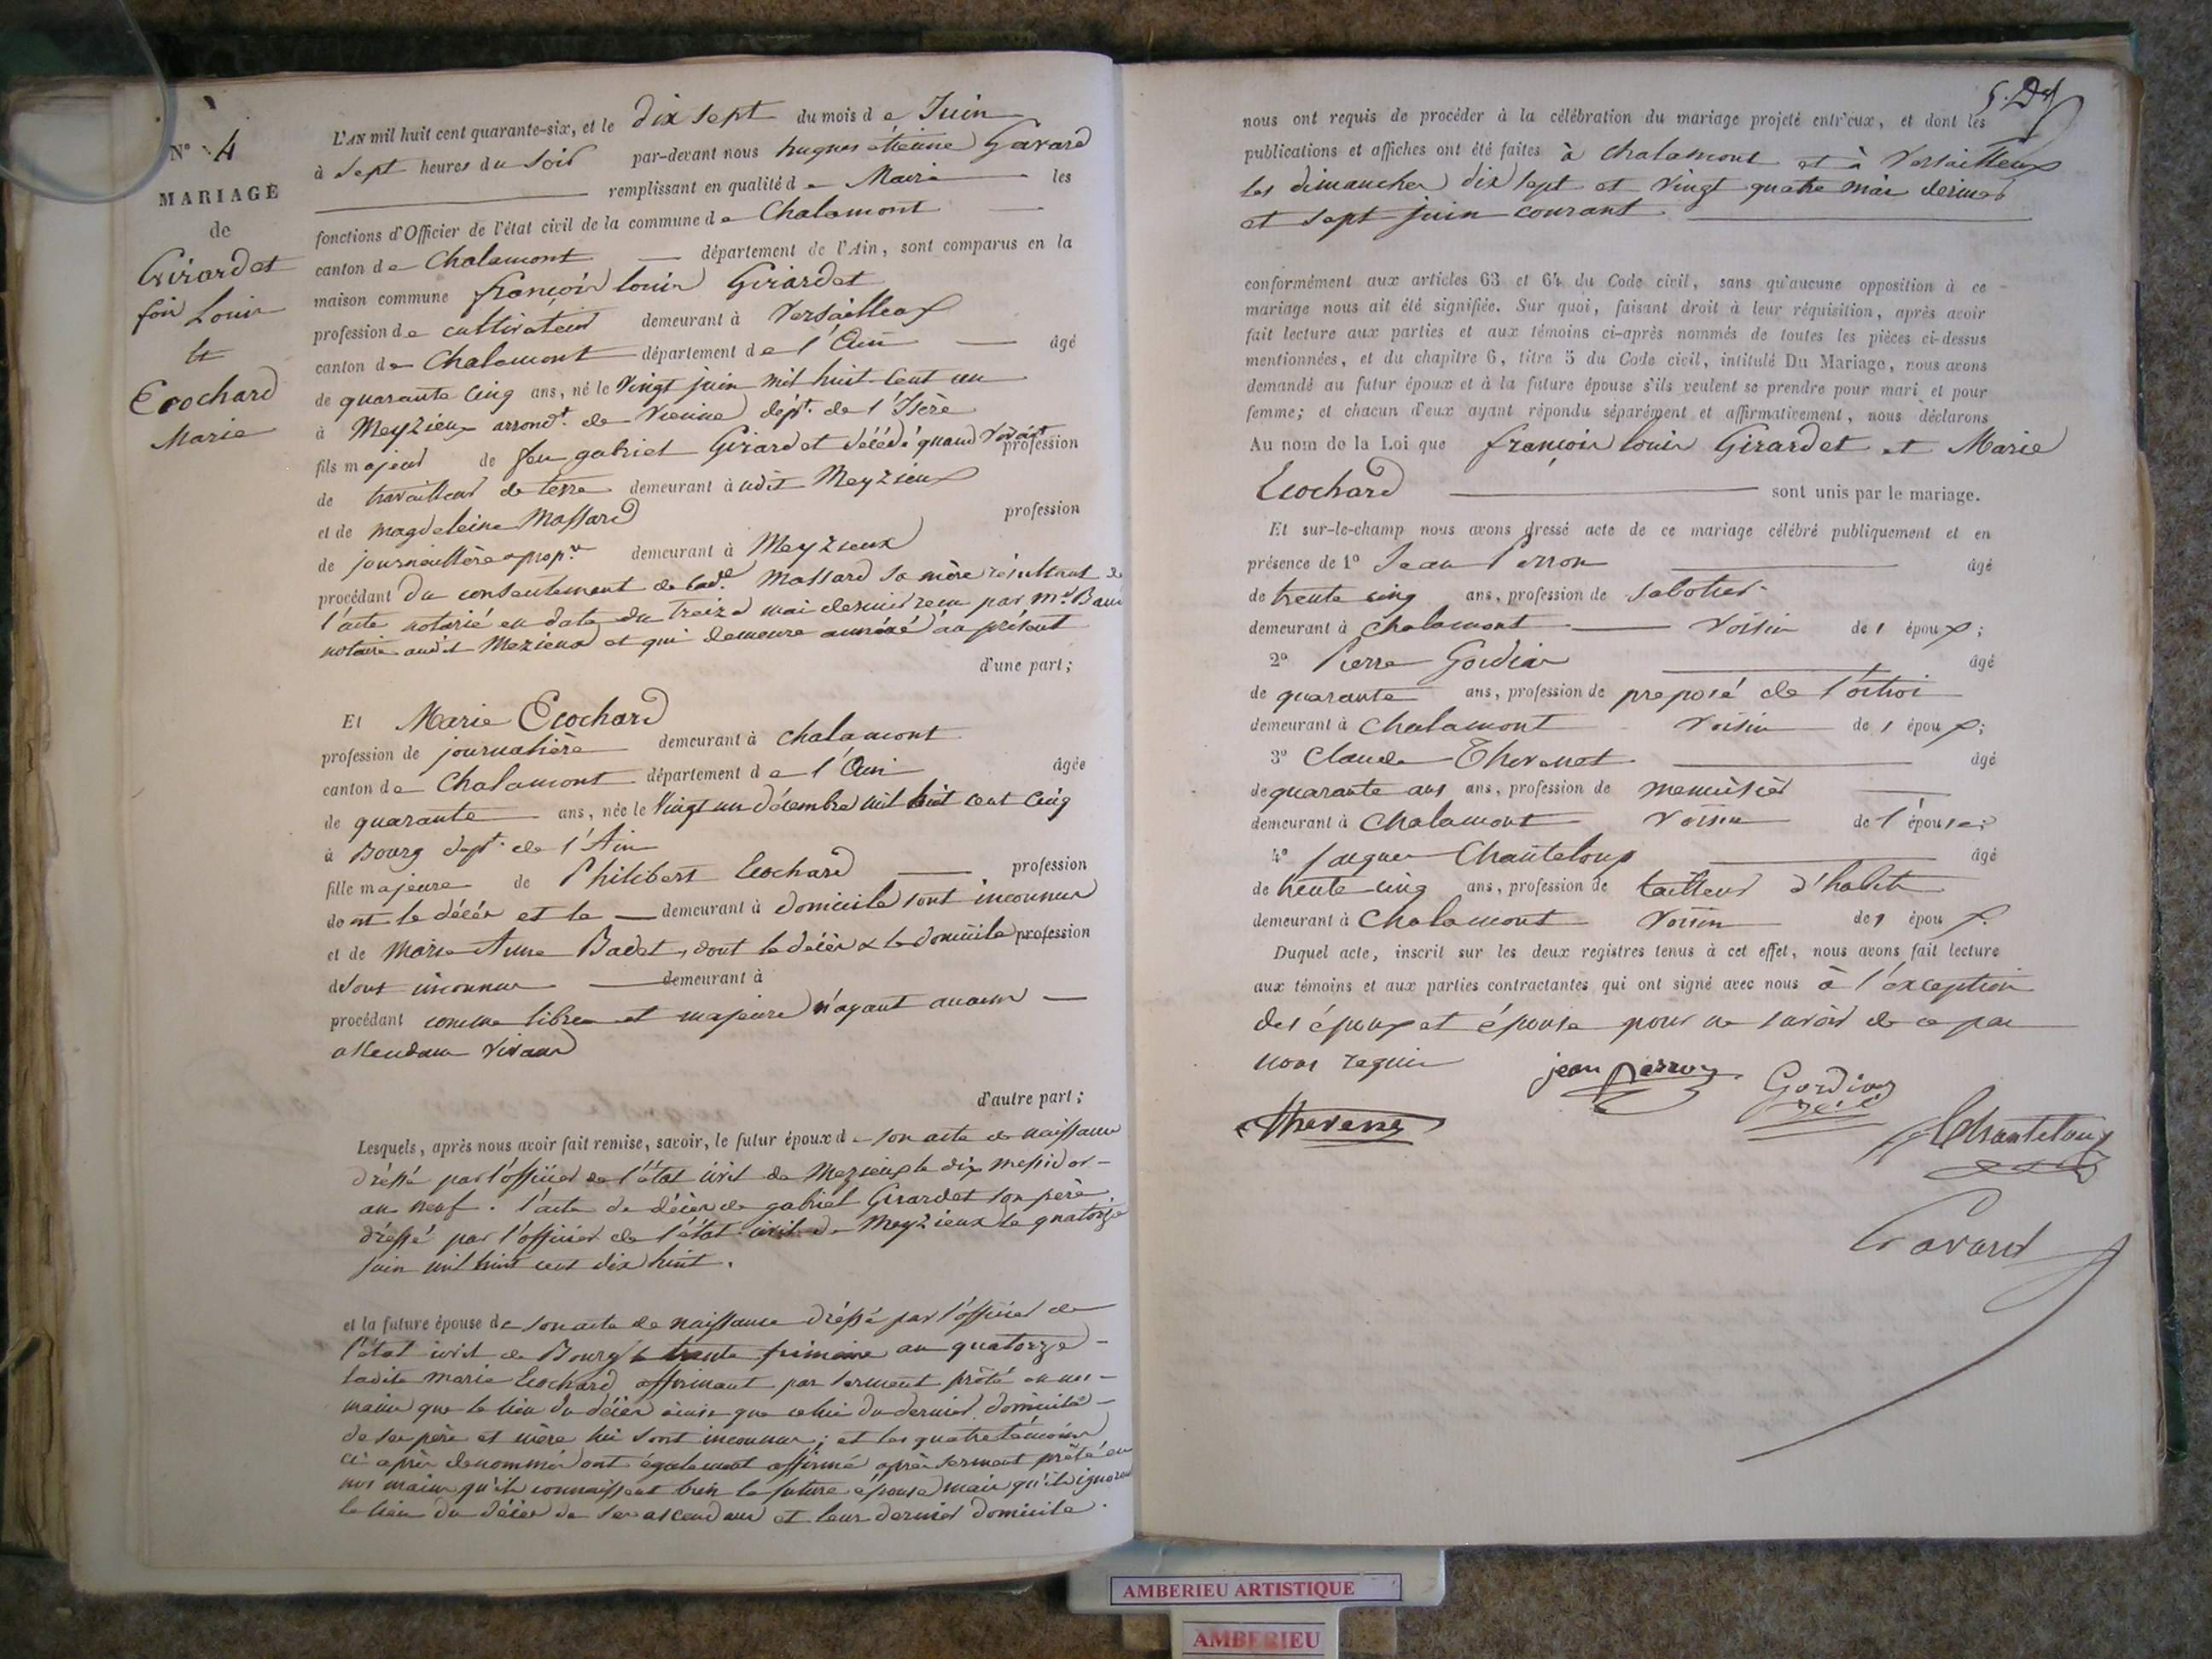 N° 4
MARIAGE
de
Girardet
fois Louis
et
Ecochard
Marie
L'AN mil huit cent quarante-six, et le dix sept du mois de Juin
à sept heures du soir par-devant nous hugues étienne Gavard
remplissant en qualité de Maire les
fonctions d'Officier de l'état civil de la commune de Chalamont
canton de Chalamont département de l'Ain, sont comparus en la
maison commune françois louis Girardet
profession de cultivateur demeurant à Versailleux
canton de Chalamont département de l'Ain âgé
de quarante cinq ans, né le vingt juin mil huit cent un
à Meyzieux arrondt. de Vienne dépt. de l'Isère
fils majeur de feu gabriel Girardet décédé quand vivait profession
de travailleur de terre demeurant à udit Meyzieux
et de magdeleine Massard profession
de journallière & propre demeurant à Meyzieux
procédant du consentement de lade Massard sa mère résultant de
l'acte notarié en date du treize mai dernier recu par Me
notaire audit Mezieux et qui demeure annéxé au présent
d'une part;
Et Marie Ecochard
profession de journalière demeurant à chalamont
canton de Chalamont département de l'Ain âgée
de quarante ans, née le vingt un décembre mil huit cent cinq
à Bourg dept. de l'Ain
fille majeure de Philibert Ecochard profession
dont le décès et le demeurant à domicile sont inconnus
et de Marie Anne Badet, dont le décès & le domicile profession
de sont inconnus demeurant à
procédant comme libre et majeure n'ayant aucuns
ascendans vivans
d'autre part;
Lesquels, après nous avoir fait remise, savoir, le futur époux de son acte de naissance
dréssé par l'officier de l'état civil de Mezieux le dix messidor
an neuf. l'acte de décès de gabriel Girardet son père
dréssé par l'officier de l'état civil de Meyzieux le quatorze
juin mil huit cent dix huit.
et la future épouse de son acte de naissance dréssé par l'officier de
l'état civil de Bourg le trente frimaire an quatorze
ladite marie Ecochard affirmant par serment prêté en nos
mains que le lieu du décès ainsi que celui du dernier domicile
de ses père et mère lui sont inconnus; et les quatre témoins
ci après denommés ont également affirmé après serment prêté en
nos mains qu'ils connaissent bien la future épouse mais qu'ils ignorent
le lieu du décès de ses ascendans et leur dernier domicile.
nous ont requis de procéder à la célébration du mariage projeté entr'eux, et dont les
publications et affiches ont été faites à chalamont et à Versailleux
les dimanches dix sept et vingt quatre mai derniers
et sept juin courant
conformément aux articles 63 et 64 du Code civil, sans qu'aucune opposition à ce
mariage nous ait été signifiée. Sur quoi, faisant droit à leur réquisition, après avoir
fait lecture aux parties et aux témoins ci-après nommés de toutes les pièces ci-dessus
mentionnées, et du chapitre 6, titre 5 du Code civil, intitulé Du Mariage, nous avons
demandé au futur époux et à la future épouse s'ils veulent se prendre pour mari et pour
femme; et chacun d'eux ayant répondu séparément et affirmativement, nous déclarons
Au nom de la Loi que françois louis Girardet et Marie
Ecochard sont unis par le mariage.
Et sur-le-champ nous avons dressé acte de ce mariage célébré publiquement et en
présence de 1° Jean Perron âgé
de trente cinq ans, profession de sabotier
demeurant à chalamont voisin de l époux;
2° Pierre Gordian âgé
de quarante ans, profession de preposé de l'octroi
demeurant à Chalamont voisin de l époux;
3° Claude Thevenet âgé
de quarante ans ans, profession de menuisier
demeurant à Chalamont voisin de l'épouse;
4° jacques Chanteloup âgé
de trente cinq ans, profession de tailleur d'habits
demeurant à Chalamont voisin de l époux.
Duquel acte, inscrit sur les deux registres tenus à cet effet, nous avons fait lecture
aux témoins et aux parties contractantes qui ont signé avec nous à l'exception
des époux et épouse pour ne savoir de ce par
nous requis
jean perron
Gordian
thevenet
Chanteloup
Gavard
AMBERIEU ARTISTIQUE
AMBERIEU